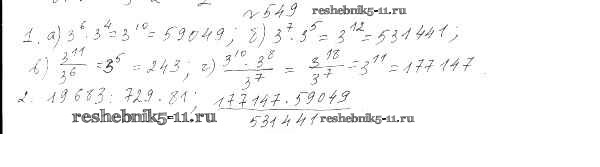 №549 reshebnik5-11.ru
1. а) 3⁶·3⁴=3¹⁰=59049; б) 3⁷·3⁵=3¹²=531441;
в) 3¹¹/3⁶=3⁵=243; г) 3¹⁰·3⁸/3⁷=3¹⁸/3⁷=3¹¹=177147.
2. 19683:729·81; 177147·59049/531441
reshebnik5-11.ru reshebnik5-11.ru